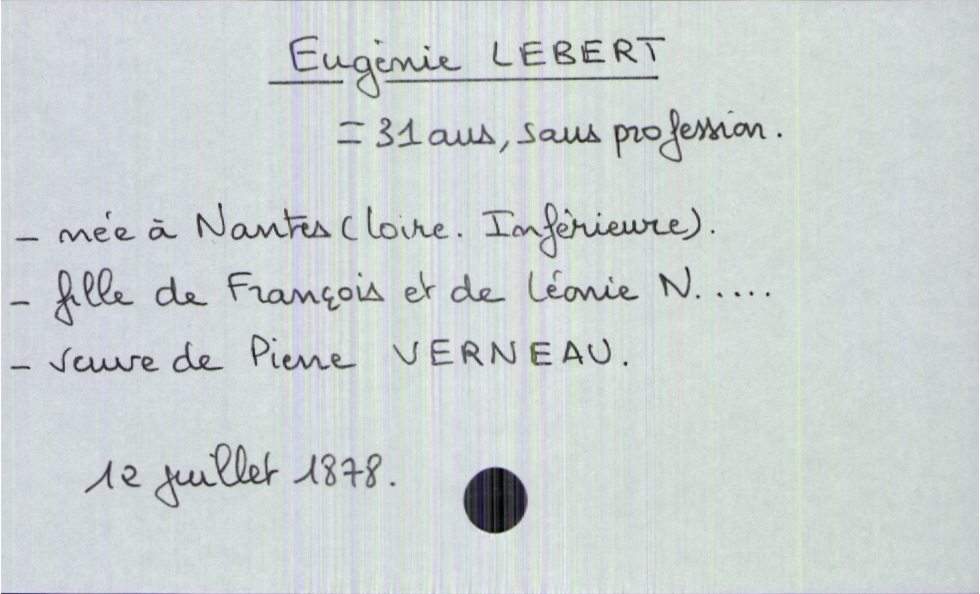 Eugénie LEBERT
= 31 ans, sans profession.
- née à Nantes (Loire. Inférieure).
- fille de François et de Léonie N.....
- veuve de Pierre VERNEAU.
12 juillet 1878.